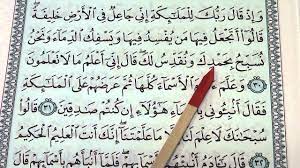 وَإِذْ قَالَ رَبُّكَ لِلْمَلَٰٓئِكَةِ إِنِّى جَاعِلٌ فِى ٱلْأَرْضِ خَلِيفَةً
قَالُوٓا۟ أَتَجْعَلُ فِيهَا مَن يُفْسِدُ فِيهَا وَيَسْفِكُ ٱلدِّمَآءَ وَنَحْنُ
نُسَبِّحُ بِحَمْدِكَ وَنُقَدِّسُ لَكَ قَالَ إِنِّىٓ أَعْلَمُ مَا لَا تَعْلَمُونَ
٣٠ وَعَلَّمَ ٱلْأَسْمَآءَ كُلَّهَا ثُمَّ عَرَضَهُمْ عَلَى ٱلْمَلَٰٓئِكَةِ
فَقَالَ أَنۢبِـُٔونِى بِأَسْمَآءِ هَٰٓؤُلَآءِ إِن كُنتُمْ صَٰدِقِينَ ٣١ قَالُوا۟
سُبْحَٰنَكَ لَا عِلْمَ لَنَآ إِلَّا مَا عَلَّمْتَنَآ إِنَّكَ أَنتَ ٱلْعَلِيمُ ٱلْحَكِيمُ
٣٢ قَالَ بِأَسْمَآئِهِمْ فَلَمَّآ أَنۢبَأَهُم بِأَسْمَآئِهِمْ